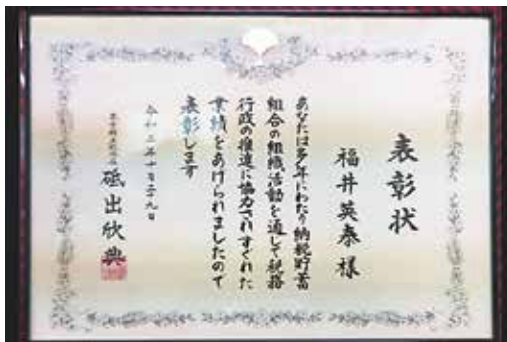 表彰状
福井英泰様
あなたは多年にわたり納税貯蓄
組合の組織活動を通して税務
行政の推進に協力されすぐれた
業績をあげられましたので
表彰します
砥出欣典